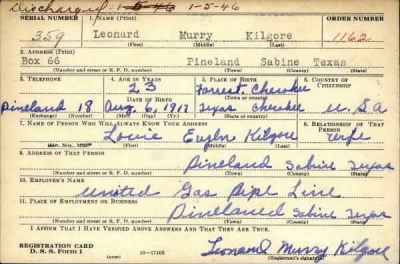 Discharged 1-5-46 1-5-46
SERIAL NUMBER 1. NAME (Print) ORDER NUMBER
359 Leonard Murry Kilgore 1162
(First) (Middle) (Last)
2. ADDRESS (Print)
Box 66 Pineland Sabine Texas
(Number and street or R. F. D. number) (Town) (County) (State)
3. TELEPHONE 4. AGE IN YEARS 5. PLACE OF BIRTH 6. COUNTRY OF CITIZENSHIP
23 Forrest Cherokee
DATE OF BIRTH
Pineland 18 Aug 6, 1917 Texas Cherokee U. S. A
(Exchange) (Number) (Mo.) (Day) (Yr.) (State or country)
7. NAME OF PERSON WHO WILL ALWAYS KNOW YOUR ADDRESS 8. RELATIONSHIP OF THAT PERSON
Kilgore wife
(First) (Middle) (Last)
9. ADDRESS OF THAT PERSON
Pineland Sabine Texas
(Number and street or R. F. D. number) (Town) (County) (State)
10. EMPLOYER'S NAME
United Gas Pipe Line
11. PLACE OF EMPLOYMENT OR BUSINESS
Pineland Sabine Texas
(Number and street or R. F. D. number) (Town) (County) (State)
I AFFIRM THAT I HAVE VERIFIED ABOVE ANSWERS AND THAT THEY ARE TRUE.
REGISTRATION CARD
D. S. S. FORM 1 16-17105 Leonard Murry Kilgore
(Registrant's signature)